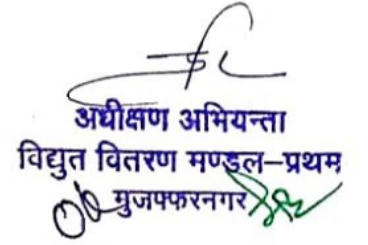 अधीक्षण अभियन्ता
विद्युत वितरण मण्डल–प्रथम
मुजफ्फरनगर